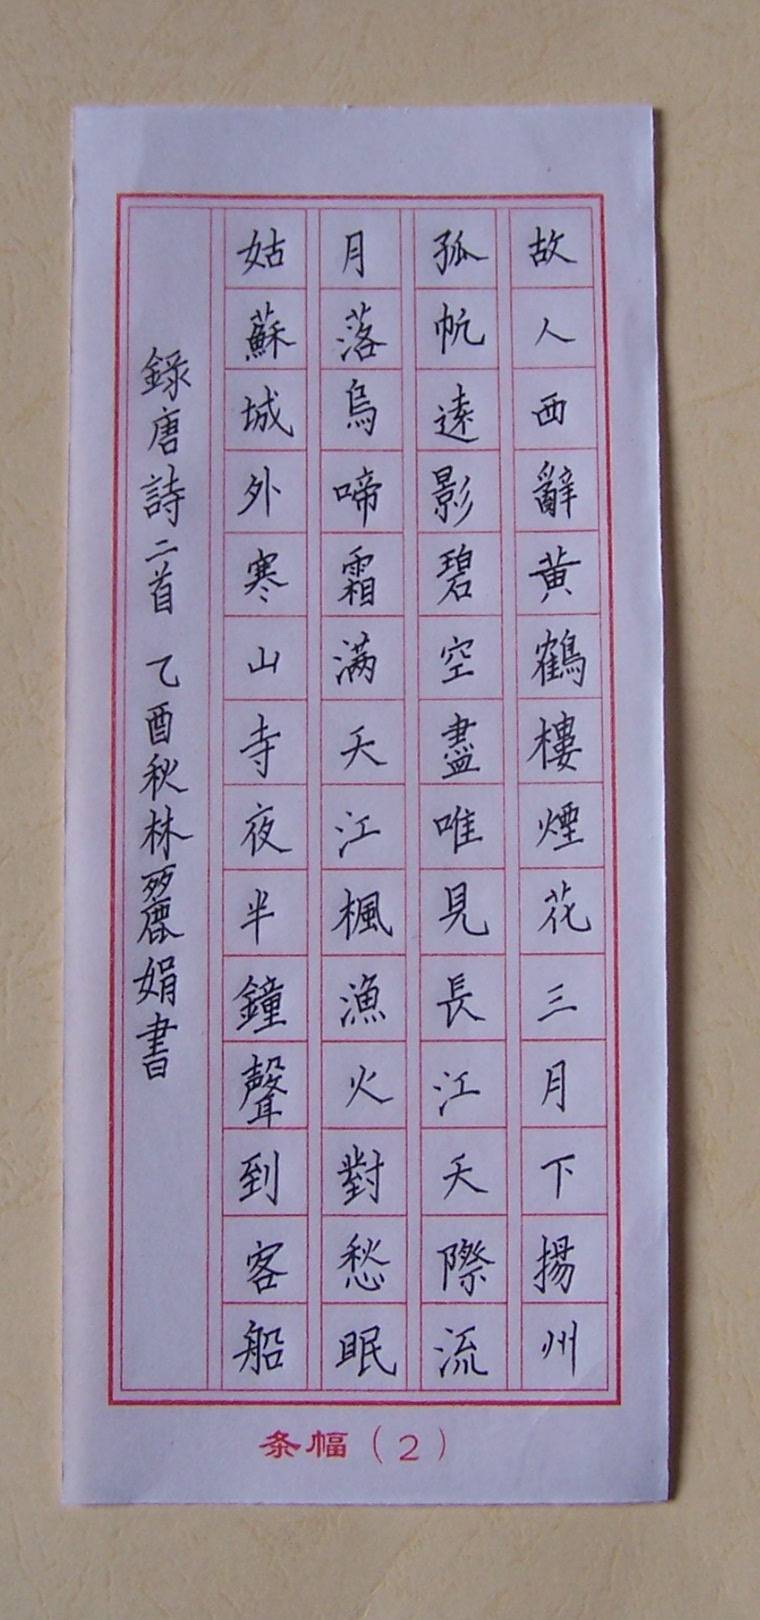 故人西辭黄鶴樓煙花三月下揚州
孤帆遠影碧空盡唯見長江天際流
月落烏啼霜满天江楓漁火對愁眠
姑蘇城外寒山寺夜半鐘聲到客船
錄唐詩二首 乙酉秋林麗娟書
条幅（2）